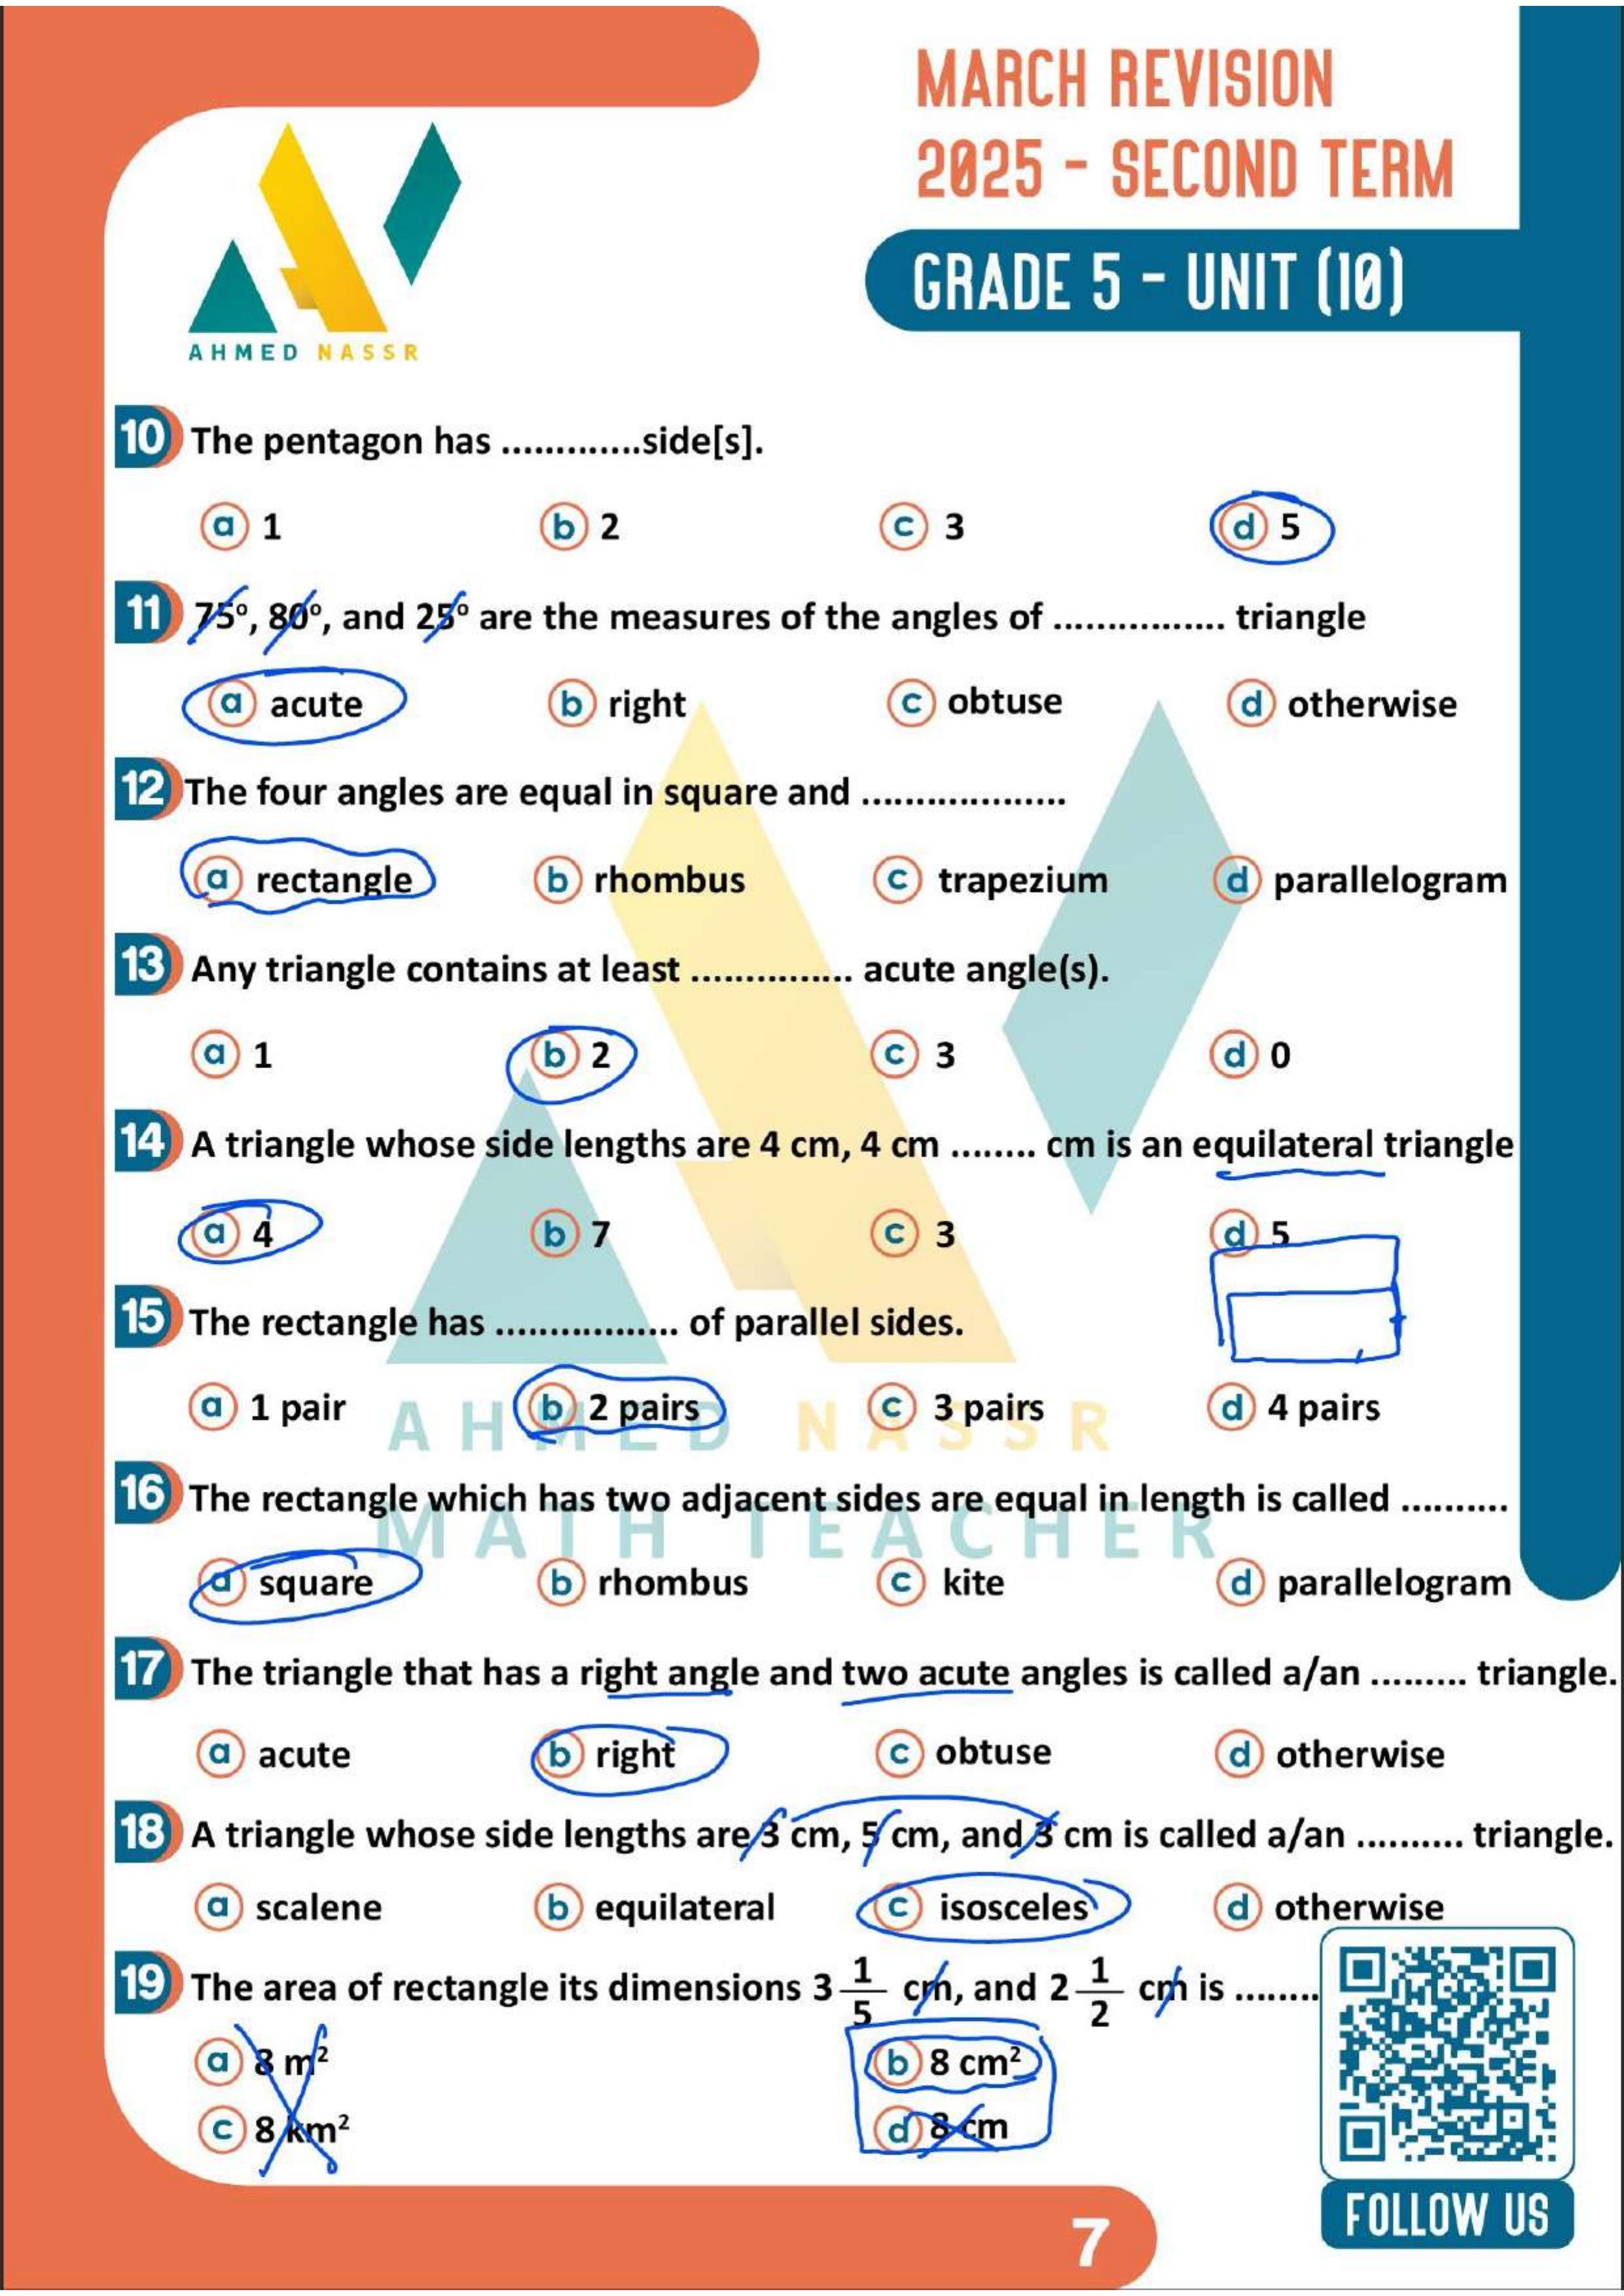 MARCH REVISION
2025 - SECOND TERM
GRADE 5 - UNIT (10)
AHMED NASSR
10 The pentagon has .............side[s].
a 1 b 2 c 3 d 5
11 75º, 80º, and 25º are the measures of the angles of ................ triangle
a acute b right c obtuse d otherwise
12 The four angles are equal in square and ...................
a rectangle b rhombus c trapezium d parallelogram
13 Any triangle contains at least ............... acute angle(s).
a 1 b 2 c 3 d 0
14 A triangle whose side lengths are 4 cm, 4 cm ........ cm is an equilateral triangle
a 4 b 7 c 3 d 5
15 The rectangle has ................. of parallel sides.
a 1 pair b 2 pairs c 3 pairs d 4 pairs
AHMED NASSR
16 The rectangle which has two adjacent sides are equal in length is called ..........
MATH TEACHER
a square b rhombus c kite d parallelogram
17 The triangle that has a right angle and two acute angles is called a/an ......... triangle.
a acute b right c obtuse d otherwise
18 A triangle whose side lengths are 3 cm, 5 cm, and 3 cm is called a/an .......... triangle.
a scalene b equilateral c isosceles d otherwise
19 The area of rectangle its dimensions 3 1/5 cm, and 2 1/2 cm is ........
a 8 m² b 8 cm²
c 8 km² d 8 cm
FOLLOW US
7